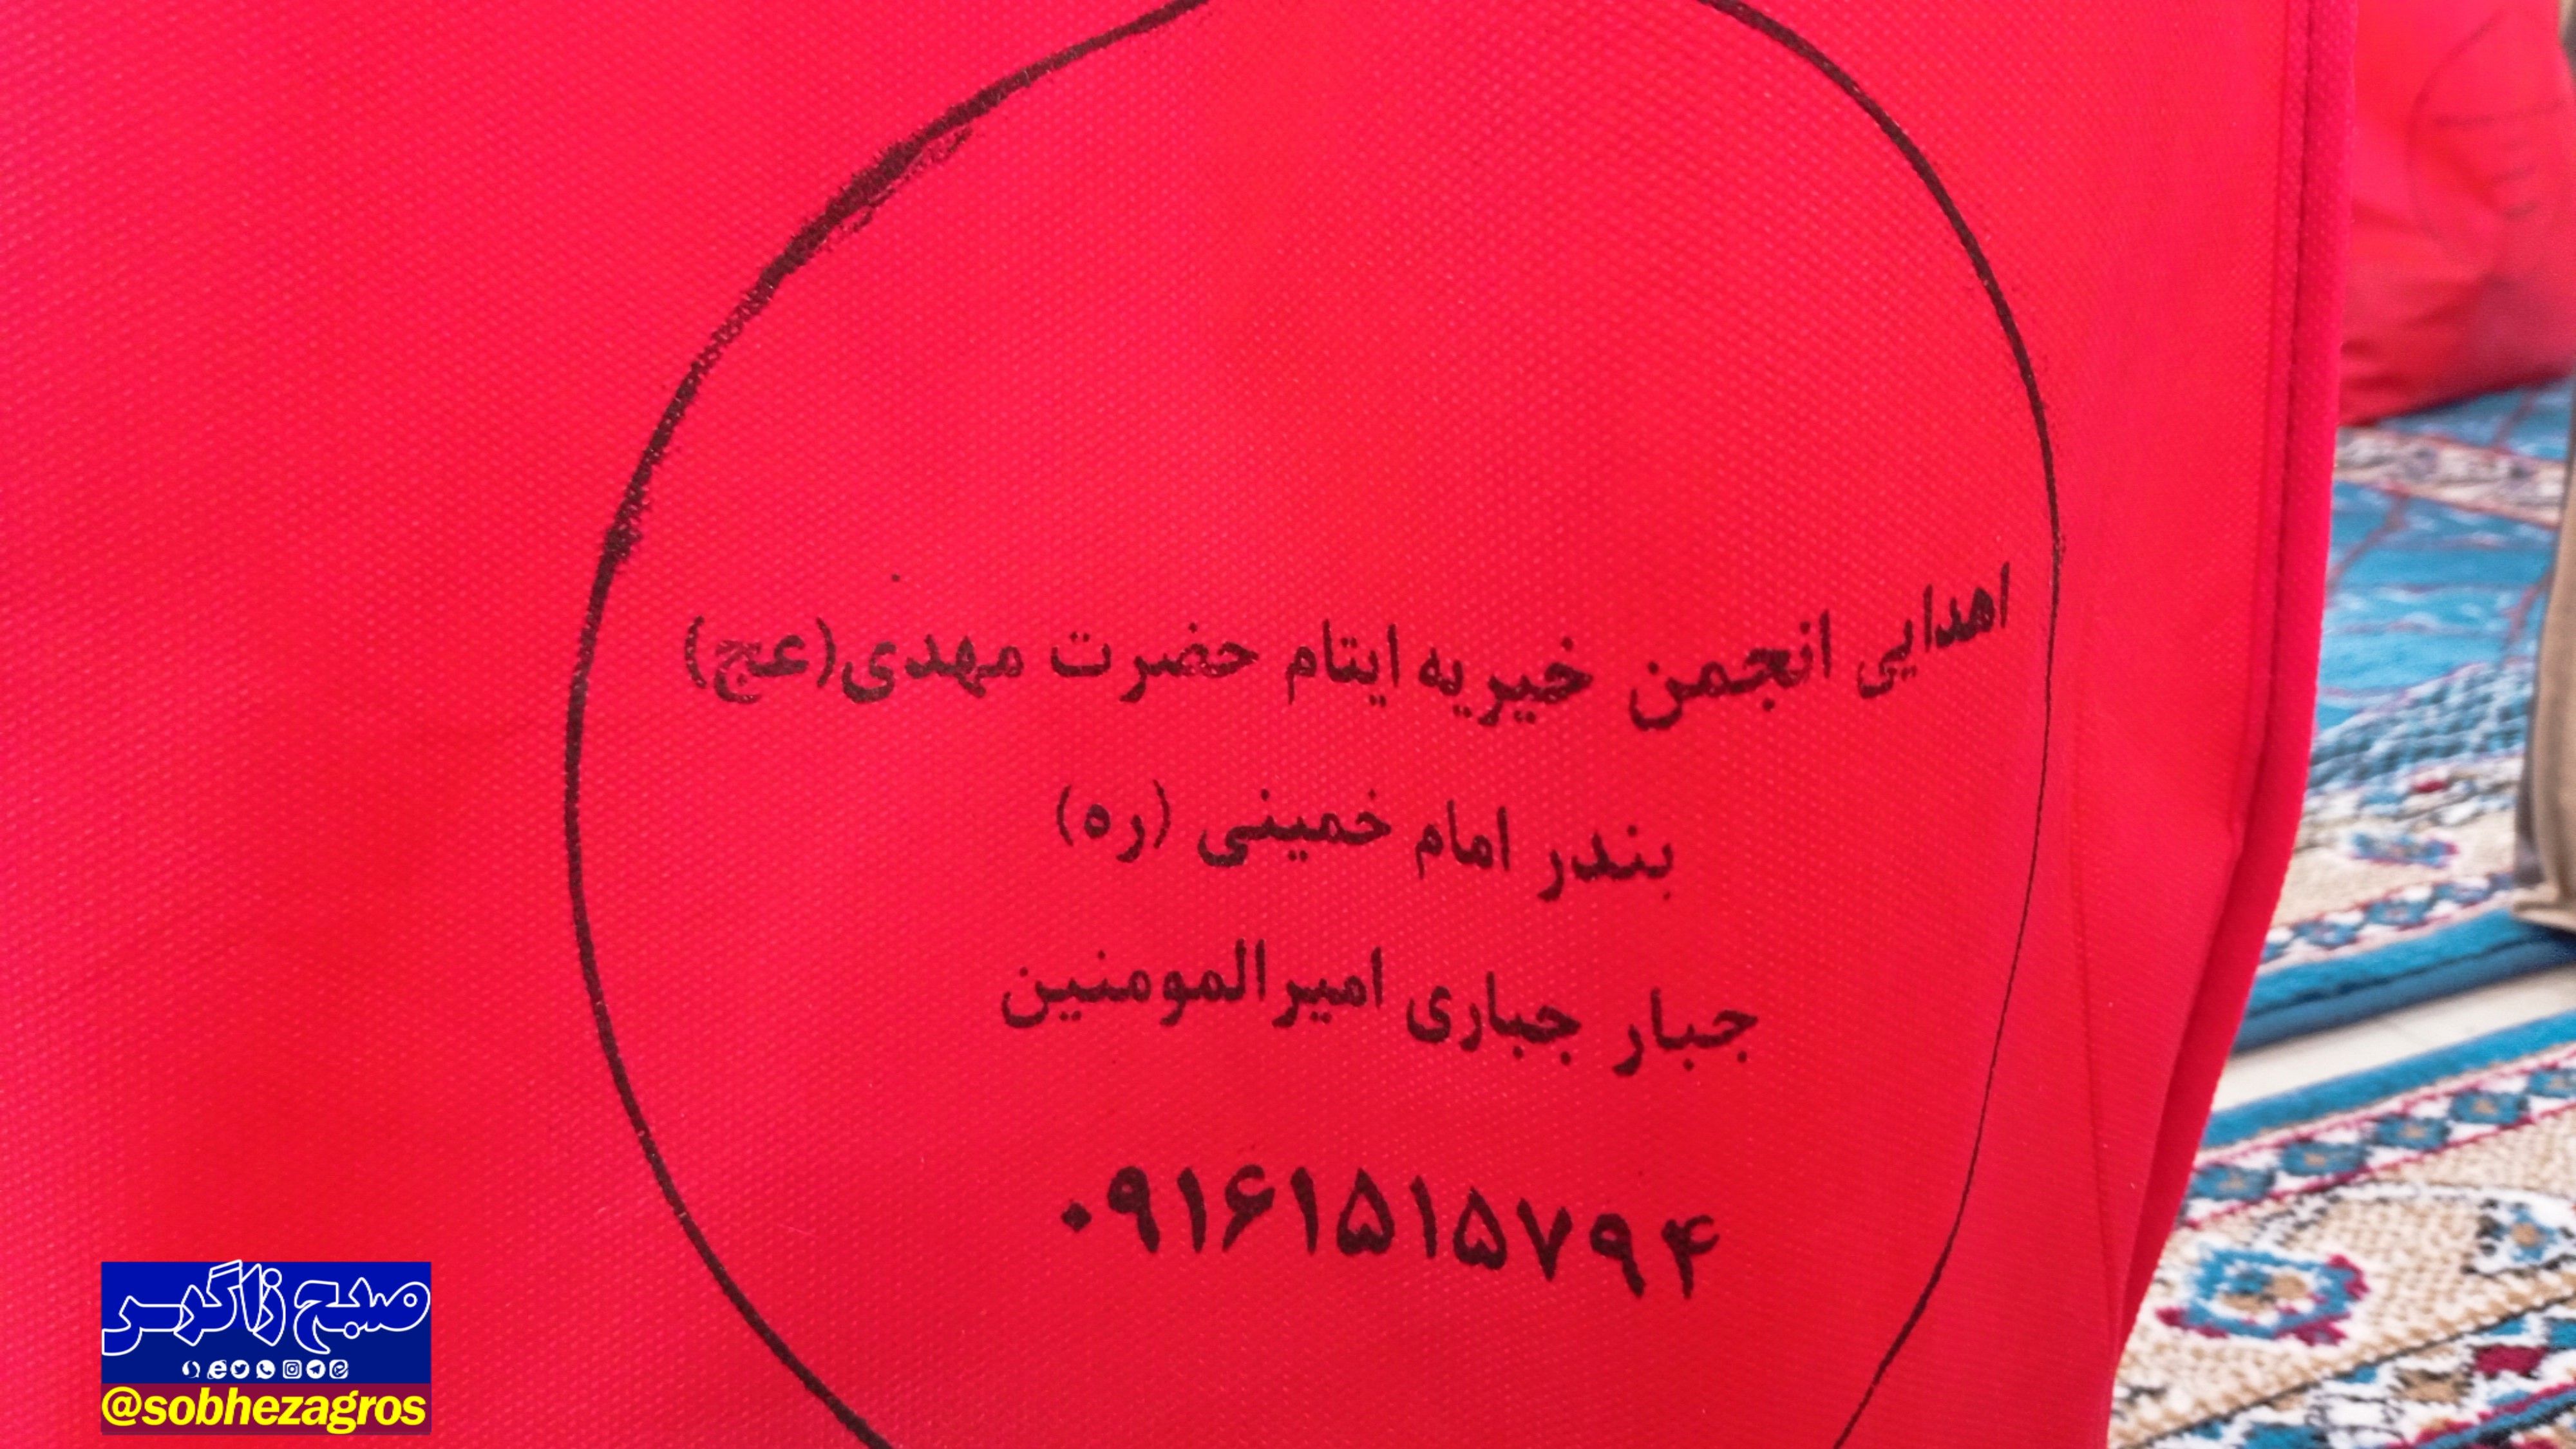 اهدایی انجمن خیریه ایتام حضرت مهدی(عج)
بندر امام خمینی (ره)
جبار جباری امیرالمومنین
۰۹۱۶۱۵۱۵۷۹۴
صبح زاگرس
@sobhezagros